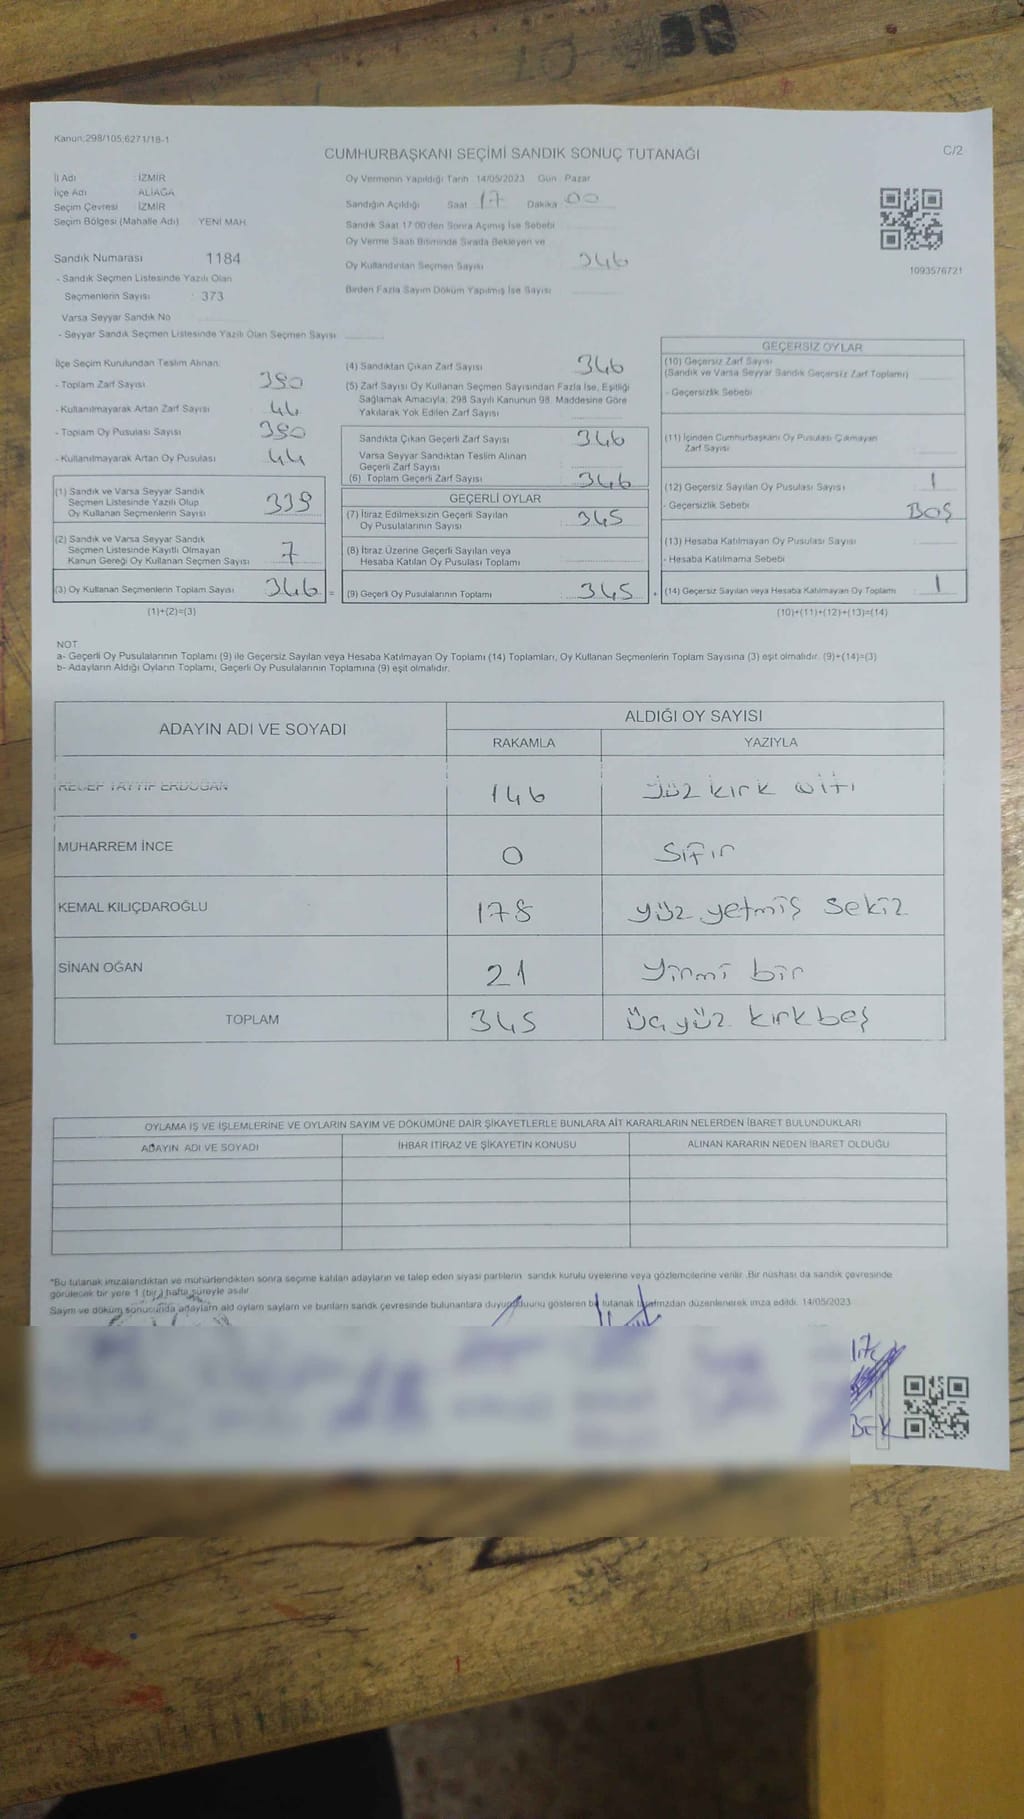 Kanun:298/105;6271/18-1
CUMHURBAŞKANI SEÇİMİ SANDIK SONUÇ TUTANAĞI
C/2
İl Adı : İZMİR
İlçe Adı : ALİAĞA
Seçim Çevresi : İZMİR
Seçim Bölgesi (Mahalle Adı) : YENİ MAH.
Sandık Numarası : 1184
- Sandık Seçmen Listesinde Yazılı Olan
Seçmenlerin Sayısı : 373
Varsa Seyyar Sandık No
- Seyyar Sandık Seçmen Listesinde Yazılı Olan Seçmen Sayısı
Oy Vermenin Yapıldığı Tarih : 14/05/2023 Gün : Pazar
Sandığın Açıldığı Saat : 17 Dakika : 00
Sandık Saat 17:00'den Sonra Açılmış İse Sebebi
Oy Verme Saati Bitiminde Sırada Bekleyen ve
Oy Kullandırılan Seçmen Sayısı 346
Birden Fazla Sayım Döküm Yapılmış İse Sayısı
1093576721
İlçe Seçim Kurulundan Teslim Alınan:
- Toplam Zarf Sayısı : 390
- Kullanılmayarak Artan Zarf Sayısı : 44
- Toplam Oy Pusulası Sayısı : 390
- Kullanılmayarak Artan Oy Pusulası : 44
(1) Sandık ve Varsa Seyyar Sandık
Seçmen Listesinde Yazılı Olup
Oy Kullanan Seçmenlerin Sayısı : 339
(2) Sandık ve Varsa Seyyar Sandık
Seçmen Listesinde Kayıtlı Olmayan
Kanun Gereği Oy Kullanan Seçmen Sayısı : 7
(3) Oy Kullanan Seçmenlerin Toplam Sayısı : 346 =
(1)+(2)=(3)
(4) Sandıktan Çıkan Zarf Sayısı : 346
(5) Zarf Sayısı Oy Kullanan Seçmen Sayısından Fazla İse, Eşitliği
Sağlamak Amacıyla, 298 Sayılı Kanunun 98. Maddesine Göre
Yakılarak Yok Edilen Zarf Sayısı
Sandıkta Çıkan Geçerli Zarf Sayısı : 346
Varsa Seyyar Sandıktan Teslim Alınan
Geçerli Zarf Sayısı
(6) Toplam Geçerli Zarf Sayısı : 346
GEÇERLİ OYLAR
(7) İtiraz Edilmeksizin Geçerli Sayılan
Oy Pusulalarının Sayısı : 345
(8) İtiraz Üzerine Geçerli Sayılan veya
Hesaba Katılan Oy Pusulası Toplamı
(9) Geçerli Oy Pusulalarının Toplamı : 345 +
GEÇERSİZ OYLAR
(10) Geçersiz Zarf Sayısı
(Sandık ve Varsa Seyyar Sandık Geçersiz Zarf Toplamı)
- Geçersizlik Sebebi
(11) İçinden Cumhurbaşkanı Oy Pusulası Çıkmayan
Zarf Sayısı
(12) Geçersiz Sayılan Oy Pusulası Sayısı : 1
- Geçersizlik Sebebi : BOŞ
(13) Hesaba Katılmayan Oy Pusulası Sayısı
- Hesaba Katılmama Sebebi
(14) Geçersiz Sayılan veya Hesaba Katılmayan Oy Toplamı : 1
(10)+(11)+(12)+(13)=(14)
NOT:
a- Geçerli Oy Pusulalarının Toplamı (9) ile Geçersiz Sayılan veya Hesaba Katılmayan Oy Toplamı (14) Toplamları, Oy Kullanan Seçmenlerin Toplam Sayısına (3) eşit olmalıdır. (9)+(14)=(3)
b- Adayların Aldığı Oyların Toplamı, Geçerli Oy Pusulalarının Toplamına (9) eşit olmalıdır.
ADAYIN ADI VE SOYADI
ALDIĞI OY SAYISI
RAKAMLA YAZIYLA
RECEP TAYYİP ERDOĞAN 146 yüz kırk altı
MUHARREM İNCE 0 sıfır
KEMAL KILIÇDAROĞLU 178 yüz yetmiş sekiz
SİNAN OĞAN 21 yirmi bir
TOPLAM 345 üç yüz kırk beş
OYLAMA İŞ VE İŞLEMLERİNE VE OYLARIN SAYIM VE DÖKÜMÜNE DAİR ŞİKAYETLERLE BUNLARA AİT KARARLARIN NELERDEN İBARET BULUNDUKLARI
ADAYIN ADI VE SOYADI İHBAR İTİRAZ VE ŞİKAYETİN KONUSU ALINAN KARARIN NEDEN İBARET OLDUĞU
*Bu tutanak imzalandıktan ve mühürlendikten sonra seçime katılan adayların ve talep eden siyasi partilerin sandık kurulu üyelerine veya gözlemcilerine verilir. Bir nüshası da sandık çevresinde
görülecek bir yere 1 (bir) hafta süreyle asılır.
Sayım ve döküm sonucunda adayların aldığı oyların sayılarını ve bunların sandık çevresinde bulunanlara duyurulduğunu gösteren bu tutanak tarafımızdan düzenlenerek imza edildi. 14/05/2023